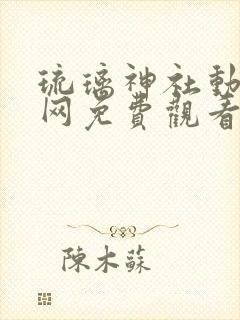 琉璃神社動
网免費觀看
陳木蘇